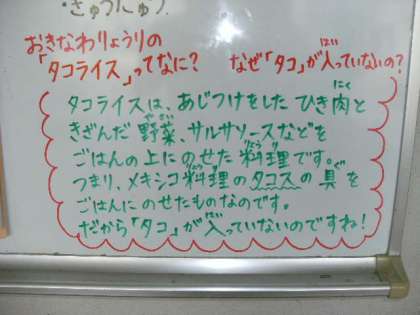 ・ぎゅうにゅう
おきなわりょうりの
「タコライス」ってなに? なぜ「タコ」が入っていないの?
タコライスは、あじつけをしたひき肉と
きざんだ野菜、サルサソースなどを
ごはんの上にのせた料理です。
つまり、メキシコ料理のタコスの具を
ごはんにのせたものなのです。
だから「タコ」が入っていないのですね!